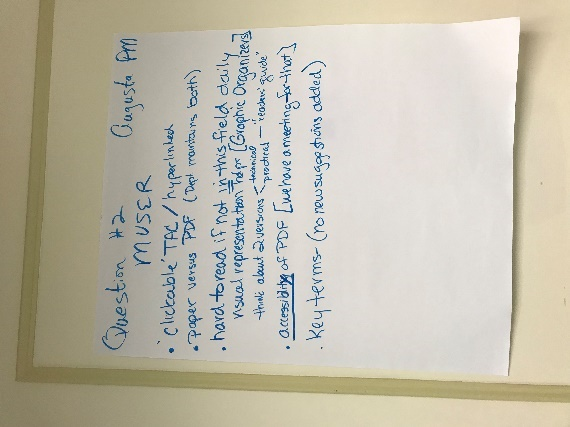 Question #2 Augusta PM
MUSER
• "Clickable" TAC/hyperlinked
• Paper versus PDF (Dept maintains both)
• hard to read if not in this field daily
visual representation helps [Graphic Organizers]
- think about 2 versions < technical
practical - "readers' guide"
• accessibility of PDF [we have a meeting for that]
• Key terms - (no new suggestions added)